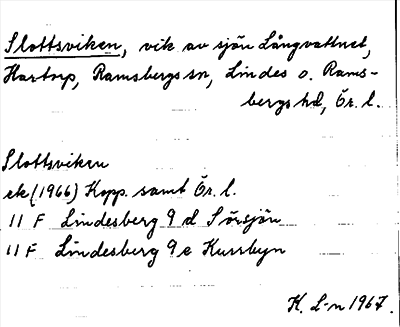 Slottsviken, vik av sjön Långvattnet,
Hartorp, Ramsbergs sn, Lindes o. Rams-
bergs hd, Ör. l.
Slottsviken
ek (1966) Kopp. samt Ör. l.
11 F Lindesberg 9 d Sörsjön
11 F Lindesberg 9 e Kursbyn
K. L-n 1967.